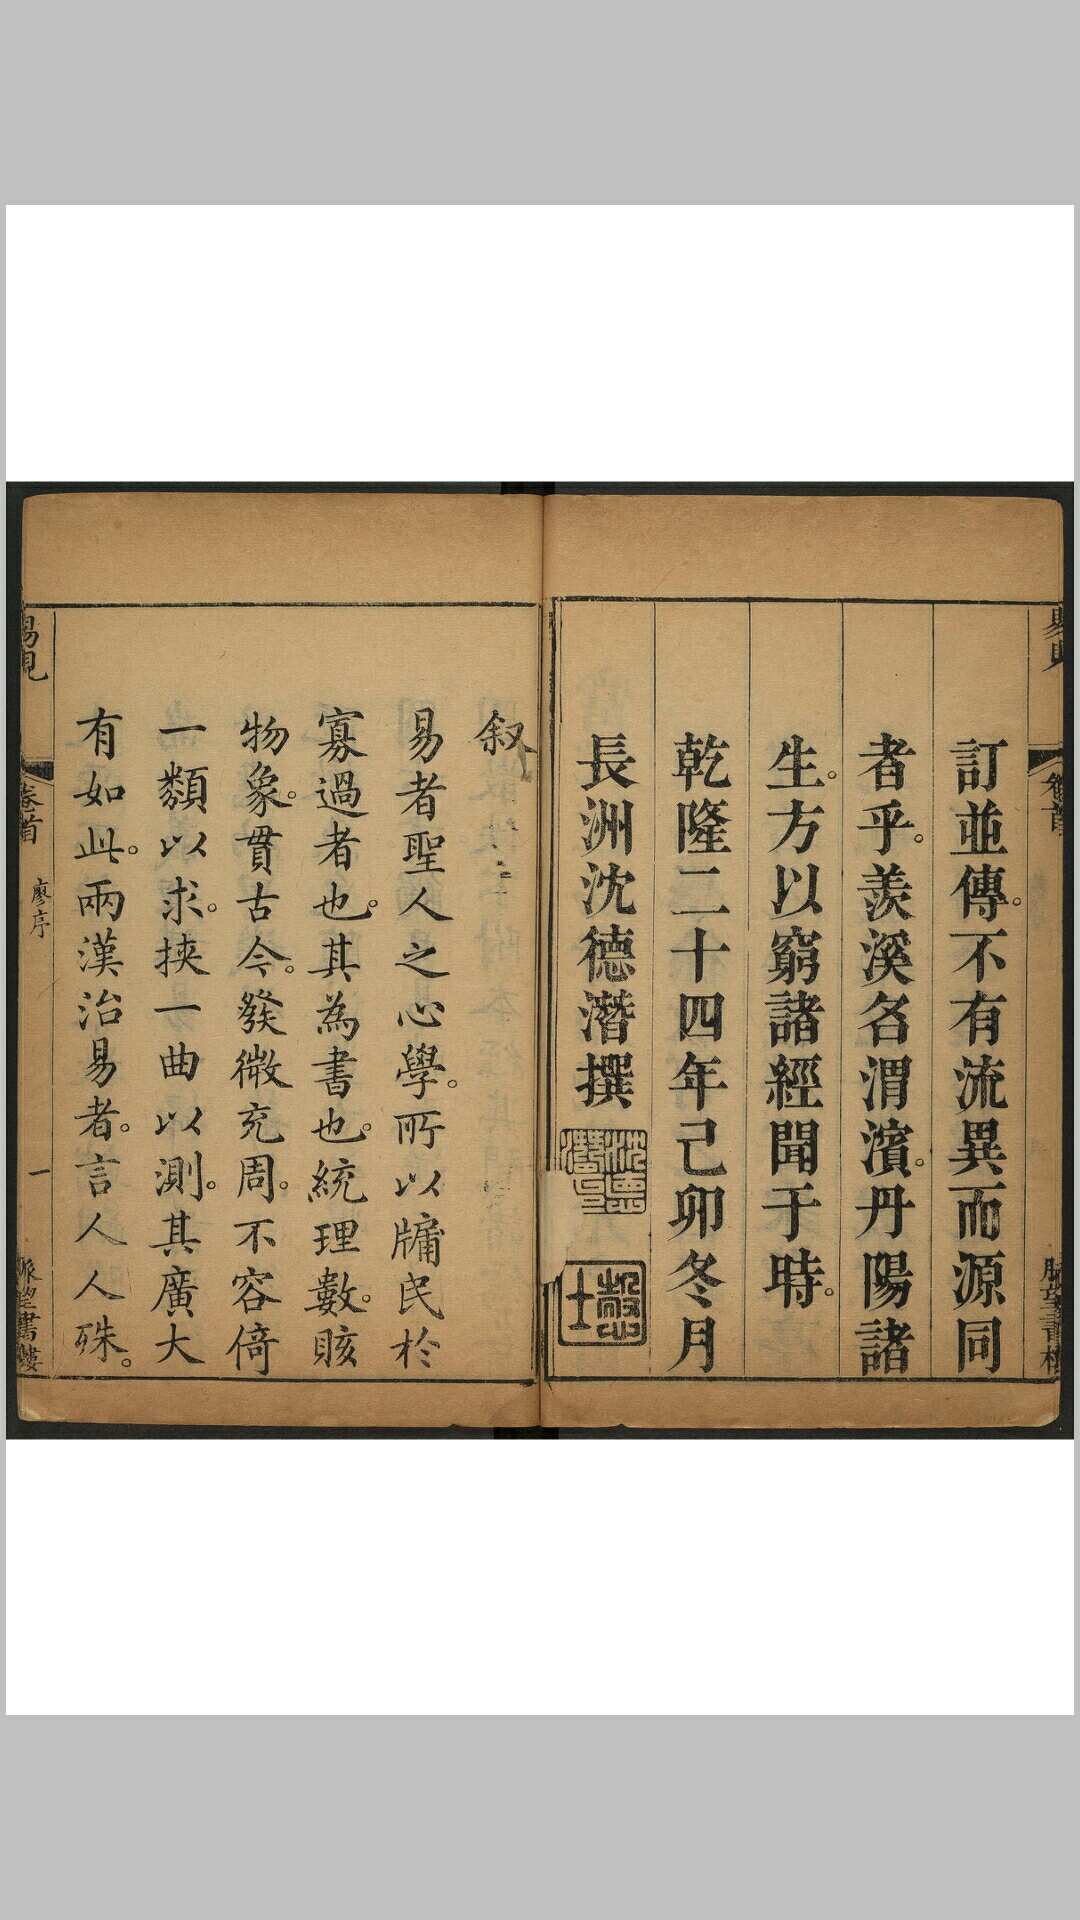 訂並傳。不有流異而源同
者乎。羨溪名渭濱。丹陽諸
生。方以窮諸經聞于時。
乾隆二十四年己卯冬月
長洲沈德潛撰
沈德潛印
叙
易者聖人之心學。所以牖民於
寡過者也。其為書也。統理數。賅
物象。貫古今。發微充周。不容倚
一類以求。挾一曲以測。其廣大
有如此。兩漢治易者。言人人殊。
易見
卷首
廖序
一
脈望書樓